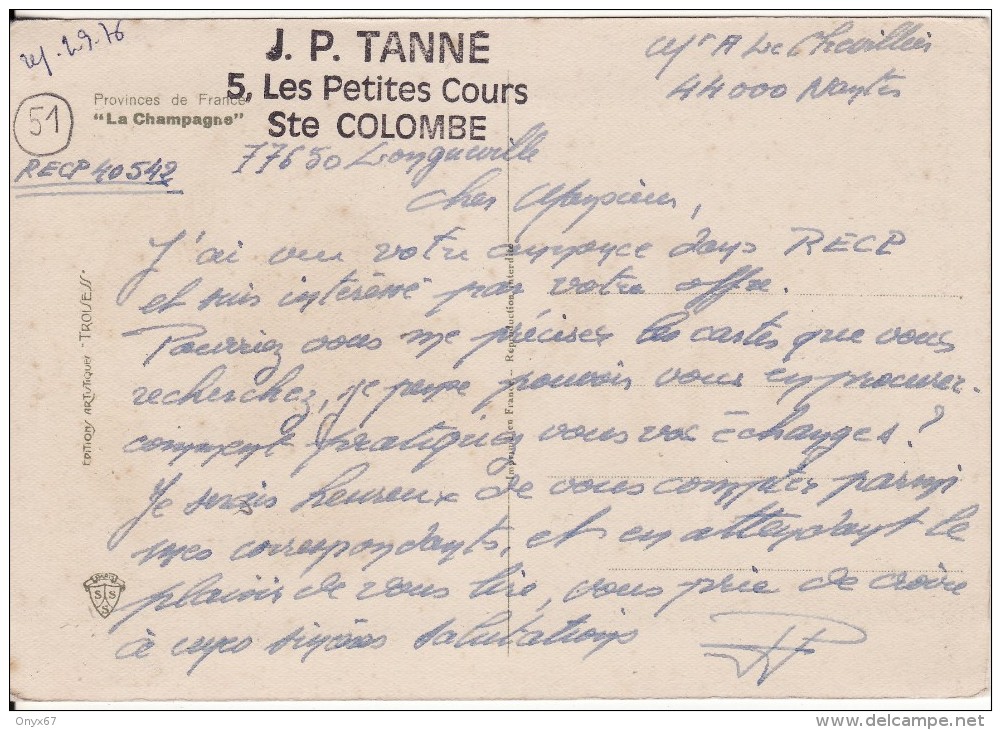 rep. 2.9.76
J. P. TANNE
5, Les Petites Cours
Ste COLOMBE
77650 Longueville
Mr A Le Chevillier
44000 Nantes
51
Provinces de France
"La Champagne"
RECP 40542
Cher Monsieur,
J'ai vu votre annonce dans RECP
et suis intéréssé par votre offre.
Pourriez vous me préciser les cartes que vous
recherchez, je pense pouvoir vous en procurer.
comment pratiquez vous vos échanges?
Je serais heureux de vous compter parmi
mes correspondants, et en attendant le
plaisir de vous lire, vous prie de croire
à mes sincères salutations
EDITIONS ARTISTIQUES - TROUESS
Imprimé en France - Reproduction interdite
S S S
Onyx67
www.delcampe.net